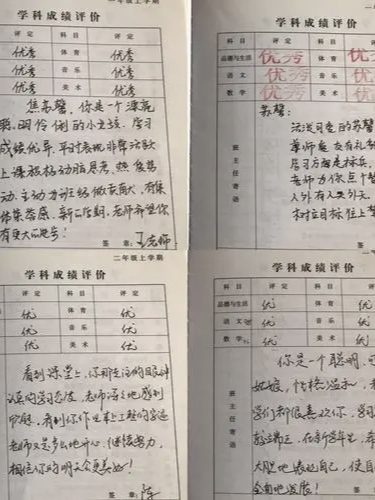 一年级上学期
学科成绩评价
评定 科目 评定
优秀 体育 优秀
优秀 音乐 优秀
优秀 美术 优秀
你是一个漂亮
聪明伶俐的小女孩,学习
成绩优异,平时表现非常活跃
上课积极动脑思考,热爱劳
动,主动为班级做事,有集
体荣誉感,新的学期,老师希望你
有更大的进步!
签章:王老师
学科成绩评价
科目 评定 科目
品德与生活 优秀 体育
语文 优秀 音乐
数学 优秀 美术
班主任寄语
苏馨:
尊师爱友有礼
学习方面是标兵,
老师为你点个
人外有人天外天,
树立目标往上
签
二年级上学期
学科成绩评价
评定 科目 评定
优 体育 优
优 音乐 优
优 美术 优
看到课堂上,你那专注的眼神
认真的学习态度,老师深深地感到
欣慰,看到你作业本上工整的字迹
老师又是多么地开心,继续努力,
相信你的明天会更美好!
签章:陈
学科成绩评价
科目 评定 科目
品德与生活 优 体育
语文 优 音乐
数学 优 美术
班主任寄语
你是一个聪明,可
姑娘,性格温和,
学们都很喜欢你,学习
在新学年里,希
大胆地表现自己,使自
全面地发展!
签